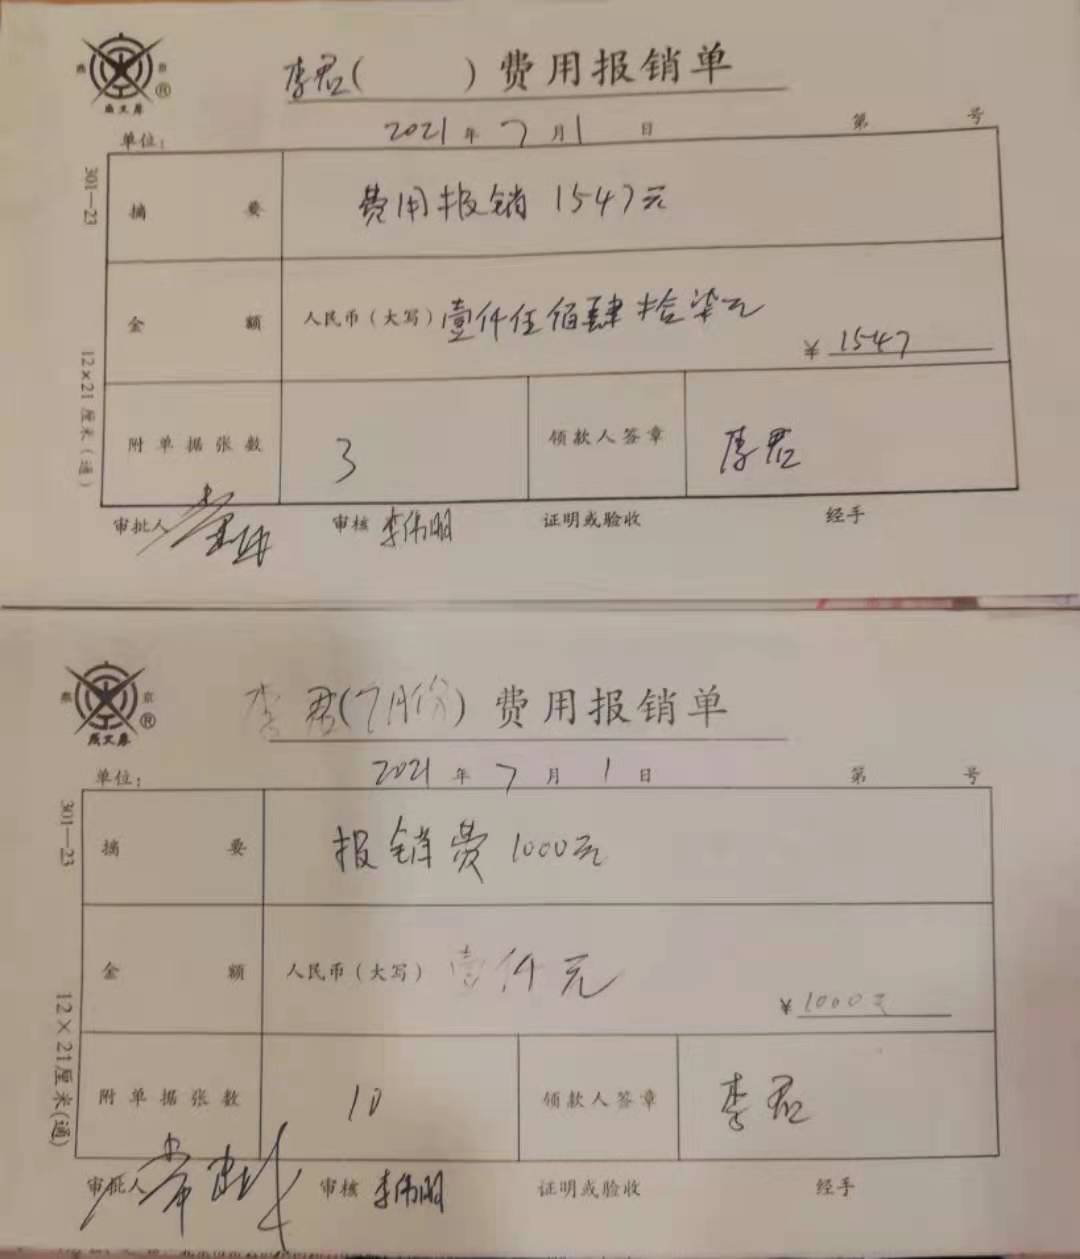 燕 京
®
成文厚
李君( )费用报销单
单位: 2021年7月1日 第 号
301—23
摘 要 费用报销1547元
金 额 人民币(大写)壹仟伍佰肆拾柒元
¥1547
12×21厘米(通)
附单据张数 3 领款人签章 李君
审批人 审核 李伟明 证明或验收 经手
燕 京
®
成文厚
李君(7月份)费用报销单
单位: 2021年7月1日 第 号
301—23
摘 要 报销费1000元
金 额 人民币(大写)壹仟元
¥1000元
12×21厘米(通)
附单据张数 10 领款人签章 李君
审批人 审核 李伟明 证明或验收 经手